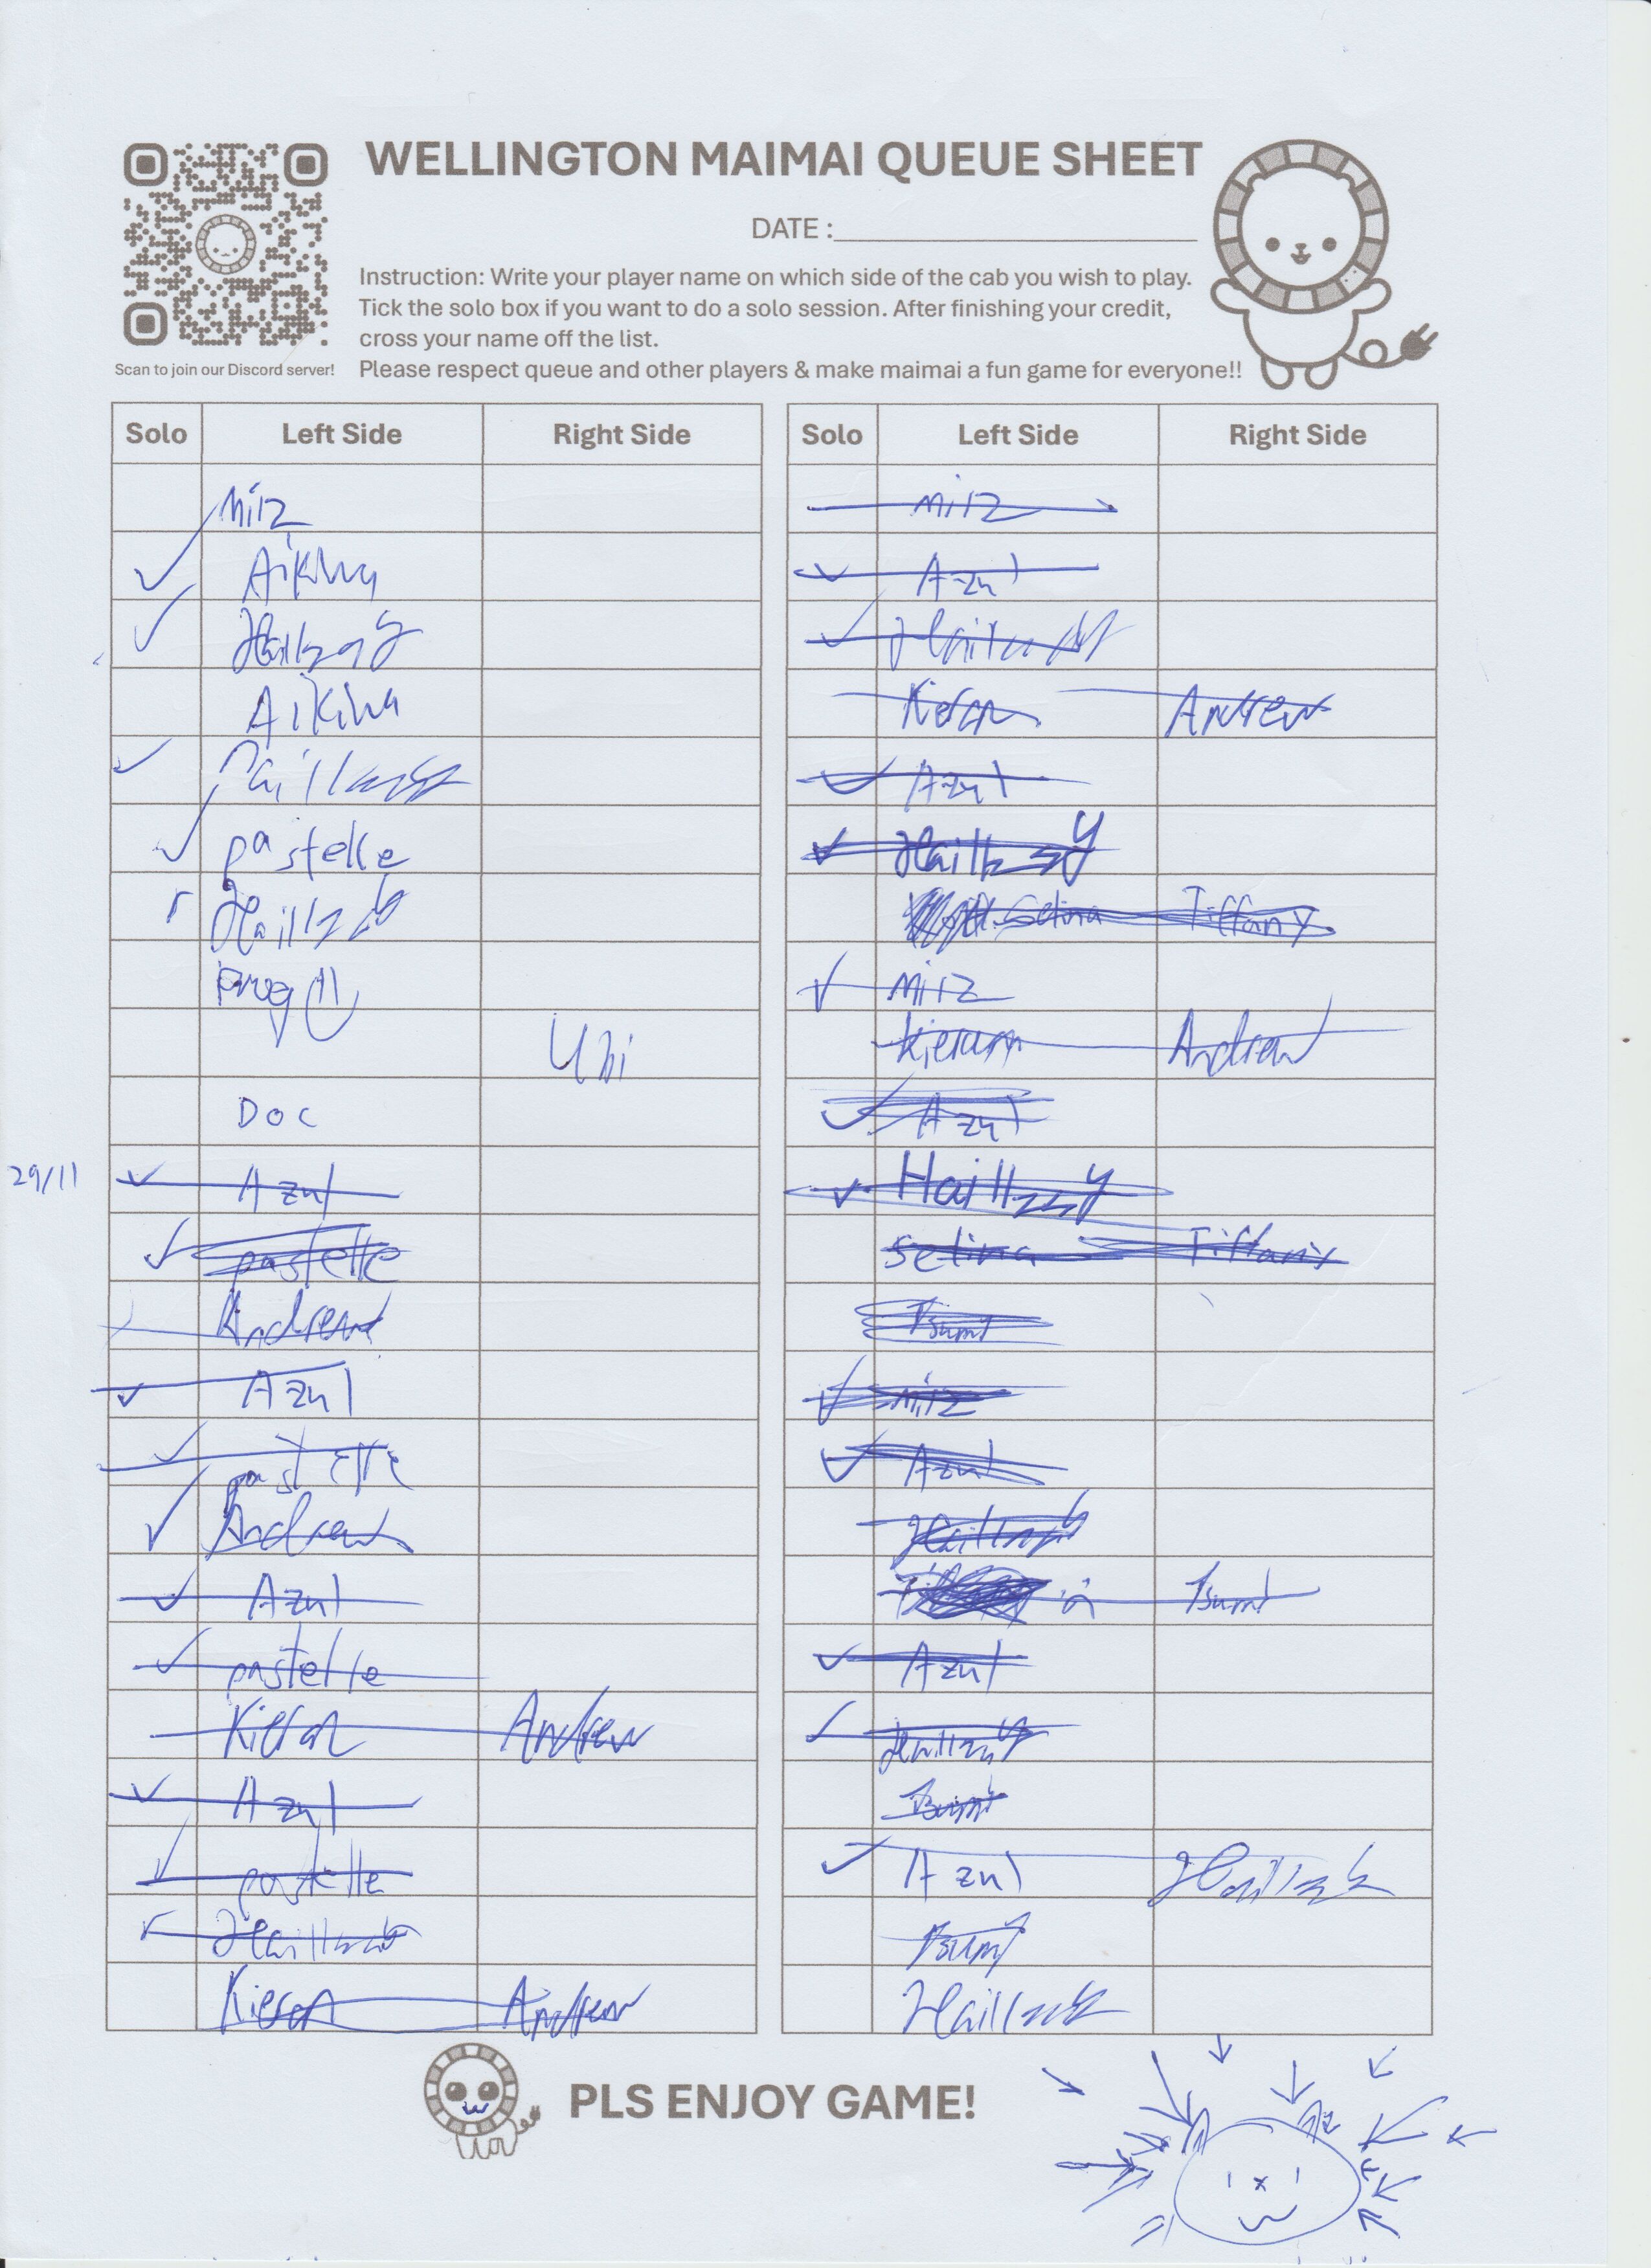 WELLINGTON MAIMAI QUEUE SHEET
DATE :
Instruction: Write your player name on which side of the cab you wish to play.
Tick the solo box if you want to do a solo session. After finishing your credit,
cross your name off the list.
Please respect queue and other players & make maimai a fun game for everyone!!
Scan to join our Discord server!
Solo Left Side Right Side
mitz
Aikiha
Hailzzy
Aikiha
Hailzzy
✓ pastelle
Hailzzy
Frog
Uni
Doc
29/11 ✓ Azul
✓ pastelle
Andrew
✓ Azul
✓ pastelle
✓ Andrew
✓ Azul
✓ pastelle
Kieran Andrew
✓ Azul
✓ pastelle
✓ Hailzzy
Kieran Andrew
Solo Left Side Right Side
mitz
✓ Azul
✓ Hailzzy
Kieran Andrew
✓ Azul
✓ Hailzzy
Selina Tiffany
✓ mitz
Kieran Andrew
✓ Azul
✓ Haillzzy
Selina Tiffany
Tsumi
✓ mitz
✓ Azul
Hailzzy
Tsumi
✓ Azul
✓ Hailzzy
Tsumi
✓ Azul Hailzzy
Tsumi
Hailzzy
PLS ENJOY GAME!